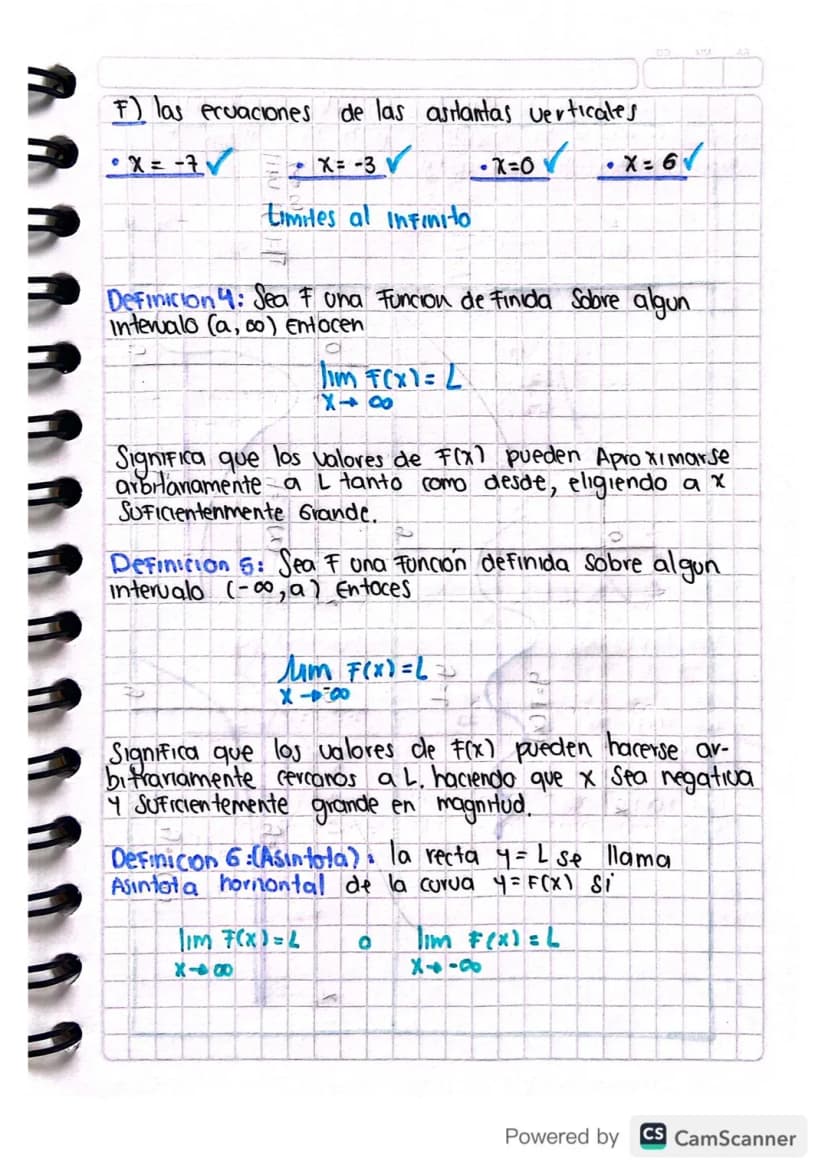 F) las ecuaciones de las asitantas verticales
• x = -7 ✓ • x = -3 ✓ • x=0 ✓ • x = 6 ✓
Limites al infinito
Definicion 4: Sea f una Funcion definida Sobre algun
intervalo (a, ∞) Entocen
lim F(x) = L
x → ∞
Significa que los valores de F(x) pueden Aproximarse
arbitariamente a L tanto como desde, eligiendo a x
Suficientenmente Grande.
Definicion 5: Sea F una Función definida Sobre algun
intervalo (-∞, a) Entoces
lim F(x) = L
x → -∞
Significa que los valores de F(x) pueden hacerse ar-
bitrariamente cercanos a L. haciendo que x Sea negativa
y Suficientemente grande en magnitud.
Definicion 6:(Asintota): la recta y = L se llama
Asintota horizontal de la curva y = F(x) Si
lim F(x) = L o lim F(x) = L
x → ∞ x → -∞
Powered by CS CamScanner